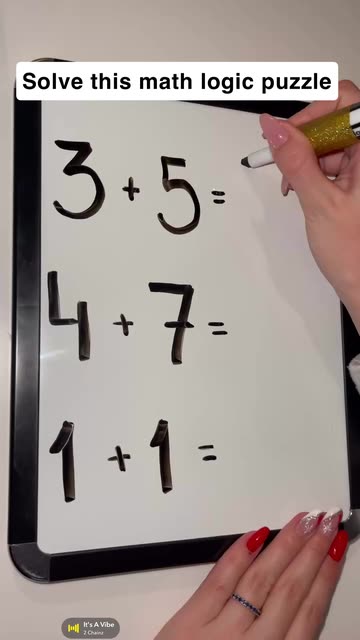 Solve this math logic puzzle
3 + 5 =
4 + 7 =
1 + 1 =
It's A Vibe
2 Chainz